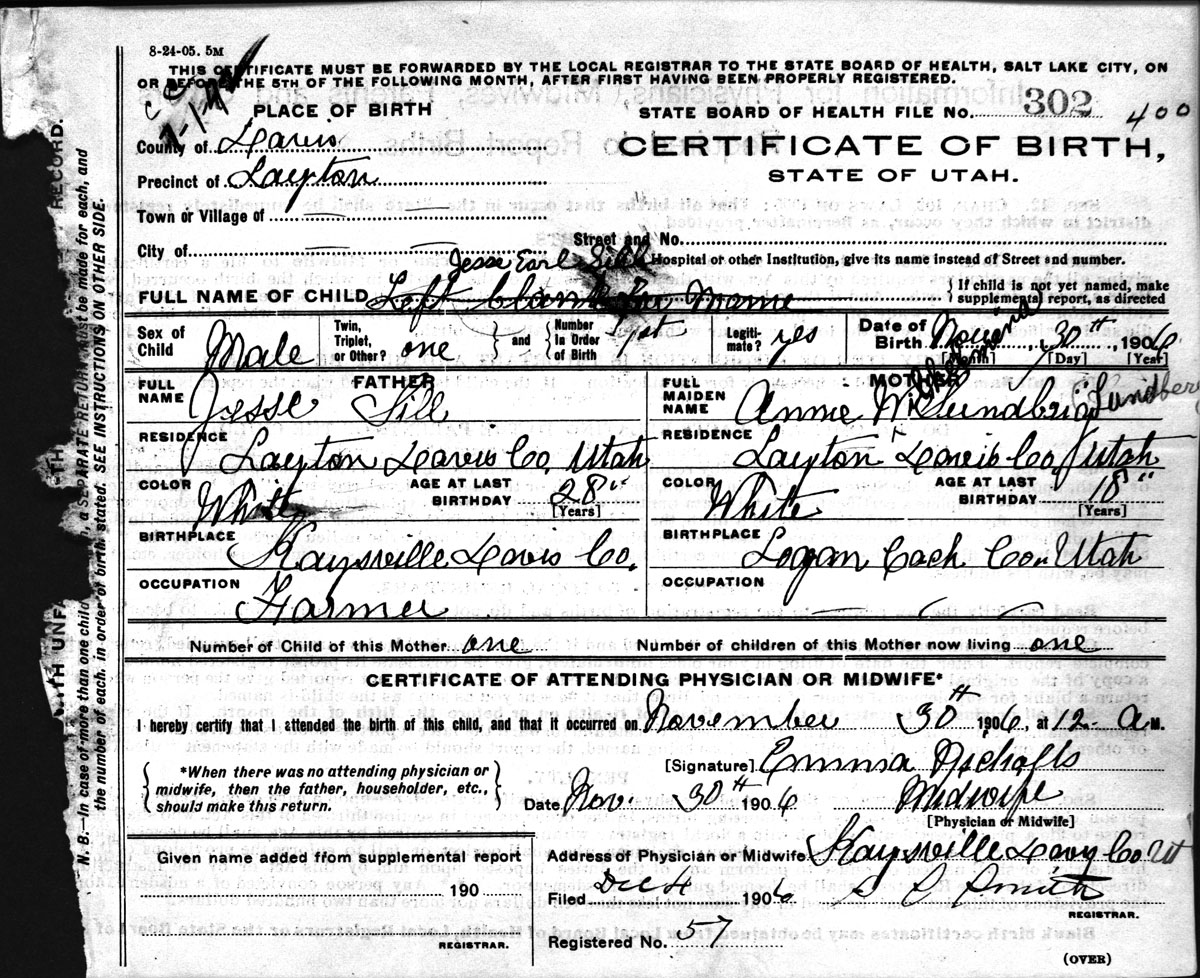 8-24-05. 5M
THIS CERTIFICATE MUST BE FORWARDED BY THE LOCAL REGISTRAR TO THE STATE BOARD OF HEALTH, SALT LAKE CITY, ON
OR BEFORE THE 5TH OF THE FOLLOWING MONTH, AFTER FIRST HAVING BEEN PROPERLY REGISTERED.
PLACE OF BIRTH
STATE BOARD OF HEALTH FILE No. 302 400
County of Davis
CERTIFICATE OF BIRTH,
Precinct of Layton
STATE OF UTAH.
Town or Village of
Street and No.
City of
Hospital or other Institution, give its name instead of Street and number.
Jesse Earl Sill
FULL NAME OF CHILD Left blank for Name
If child is not yet named, make supplemental report, as directed
Sex of Child Male
Twin, Triplet, or Other? one
and Number In Order of Birth 1st
Legitimate? yes
Date of Birth Nov 30th, 1906
[Month] [Day] [Year]
FATHER
FULL NAME Jesse Sill
RESIDENCE Layton Davis Co. Utah
COLOR White
AGE AT LAST BIRTHDAY 28 [Years]
BIRTHPLACE Kaysville Davis Co.
OCCUPATION Farmer
MOTHER
FULL MAIDEN NAME Annie W. Lundberg
RESIDENCE Layton Davis Co Utah
COLOR White
AGE AT LAST BIRTHDAY 18 [Years]
BIRTHPLACE Logan Cach Co. Utah
OCCUPATION
Number of Child of this Mother one
Number of children of this Mother now living one
CERTIFICATE OF ATTENDING PHYSICIAN OR MIDWIFE*
I hereby certify that I attended the birth of this child, and that it occurred on November 30th 1906, at 12- A M.
*When there was no attending physician or midwife, then the father, householder, etc., should make this return.
[Signature] Emma Nicholls
Date Nov. 30th 1906 Midwife
[Physician or Midwife]
Given name added from supplemental report
190
REGISTRAR.
Address of Physician or Midwife Kaysville Davy Co Ut
Filed Dec 4 1906 Smith
REGISTRAR.
Registered No. 57
(OVER)
WITH UNF
RECORD.
N. B.—In case of more than one child a SEPARATE RETURN must be made for each, and
the number of each, in order of birth, stated. SEE INSTRUCTIONS ON OTHER SIDE.